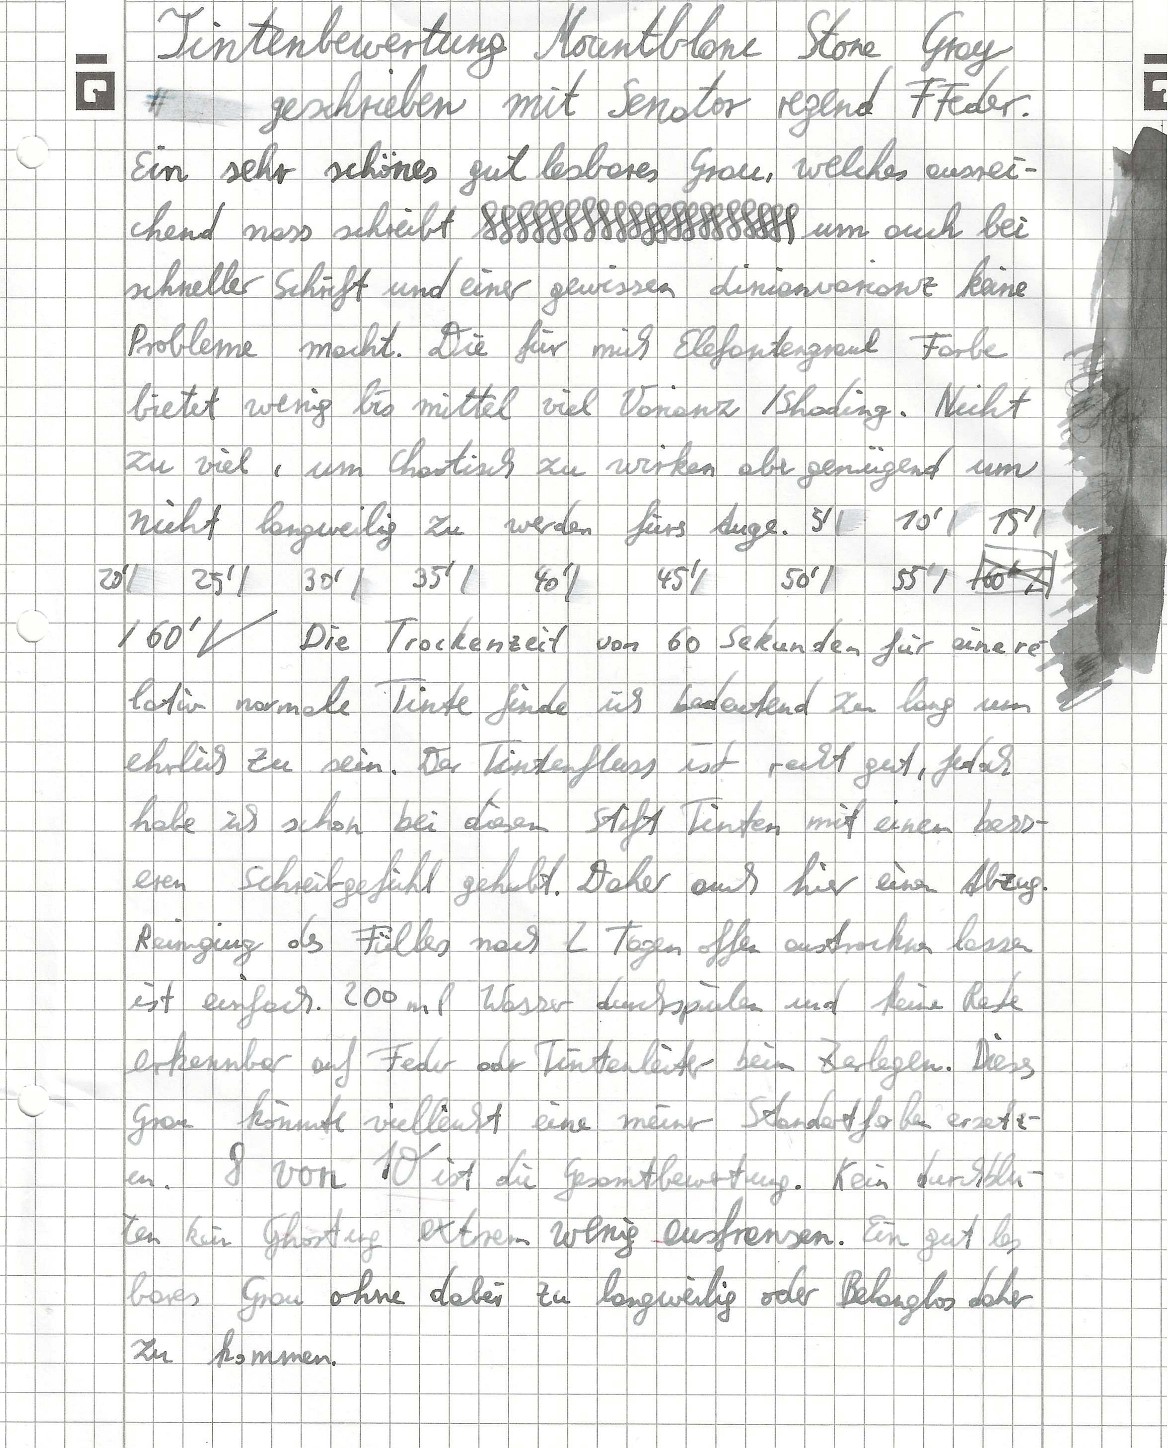 Tintenbewertung Mountblanc Stone Gray
# geschrieben mit Senator regend F Feder.
Ein sehr schönes gut lesbares Grau, welches ausrei-
chend nass schreibt um auch bei
schneller Schrift und einer gewissen Linienvarianz keine
Probleme macht. Die für mich Elefantengraue Farbe
bietet wenig bis mittel viel Varianz /Shading. Nicht
zu viel, um Chaotisch zu wirken aber genügend um
nicht langweilig zu werden fürs Auge. 5'/ 10'/ 15'/
20'/ 25'/ 30'/ 35'/ 40'/ 45'/ 50'/ 55'/
/60'/✓ Die Trockenzeit von 60 Sekunden für eine re
lativ normale Tinte finde ich bedeutend zu lang um
ehrlich zu sein. Der Tintenfluss ist recht gut, jedoch
habe ich schon bei diesem Stift Tinten mit einem bess-
eren Schreibgefühl gehabt. Daher auch hier einen Abzug.
Reinigung des Füllers nach 2 Tagen offen austrocknen lassen
ist einfach. 200 ml Wasser durchspülen und keine Reste
erkennbar auf Feder oder Tintenleiter beim Zerlegen. Dieses
Grau könnte vielleicht eine meiner Standartfarben ersetz-
en. 8 von 10 ist die Gesamtbewertung. Kein durchblu-
ten kein Ghosting extrem wenig ausfransen. Ein gut les
bares Grau ohne dabei zu langweilig oder Belanglos daher
zu kommen.